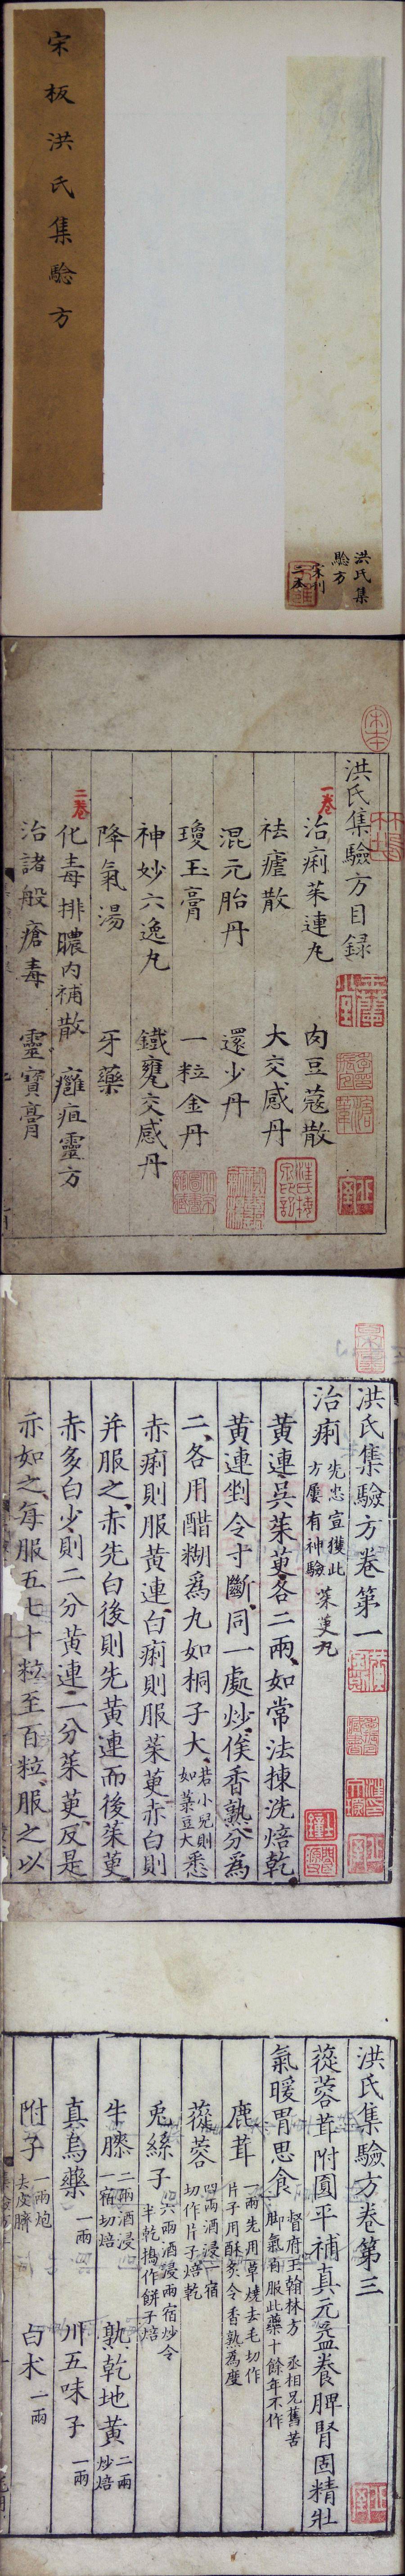 宋板洪氏集驗方
洪氏集
驗方
宋刊
二本
洪氏集驗方目録
一卷
治痢茱連丸　肉豆蔻散
祛瘧散　大交感丹
混元胎丹　還少丹
瓊玉膏　一粒金丹
神妙六逸丸　鐵甕交感丹
降氣湯　牙藥
二卷
化毒排膿内補散　癰疽靈方
治諸般瘡毒　靈寶膏
洪氏集驗方卷第一
治痢 先忠宣獲此方屢有神驗 茱萸丸
黄連吳茱萸各二兩如常法揀洗焙乾
黄連剉令寸斷同一處炒俟香熟分爲
二各用醋糊爲丸如桐子大 若小兒則如菉豆大 悉
赤痢則服黄連白痢則服茱萸赤白則
并服之赤先白後則先黄連而後茱萸
赤多白少則二分黄連一分茱萸反是
亦如之每服五七十粒至百粒服之以
洪氏集驗方卷第三
蓯蓉茸附圓平補真元益養脾腎固精壯
氣暖胃思食 督府王翰林方 丞相兄舊苦脚氣自服此藥十餘年不作
鹿茸 一兩先用草燒去毛切作片子用酥炙令香熟爲度
蓯蓉 四兩酒浸一宿切作片子焙乾
兎絲子 六兩酒浸兩宿炒令半乾搗作餅子焙
牛膝 二兩酒浸一宿切焙　熟乾地黄 二兩炒焙
真烏藥 一兩　川五味子 一兩
附子 一兩炮去皮臍　白术 一兩